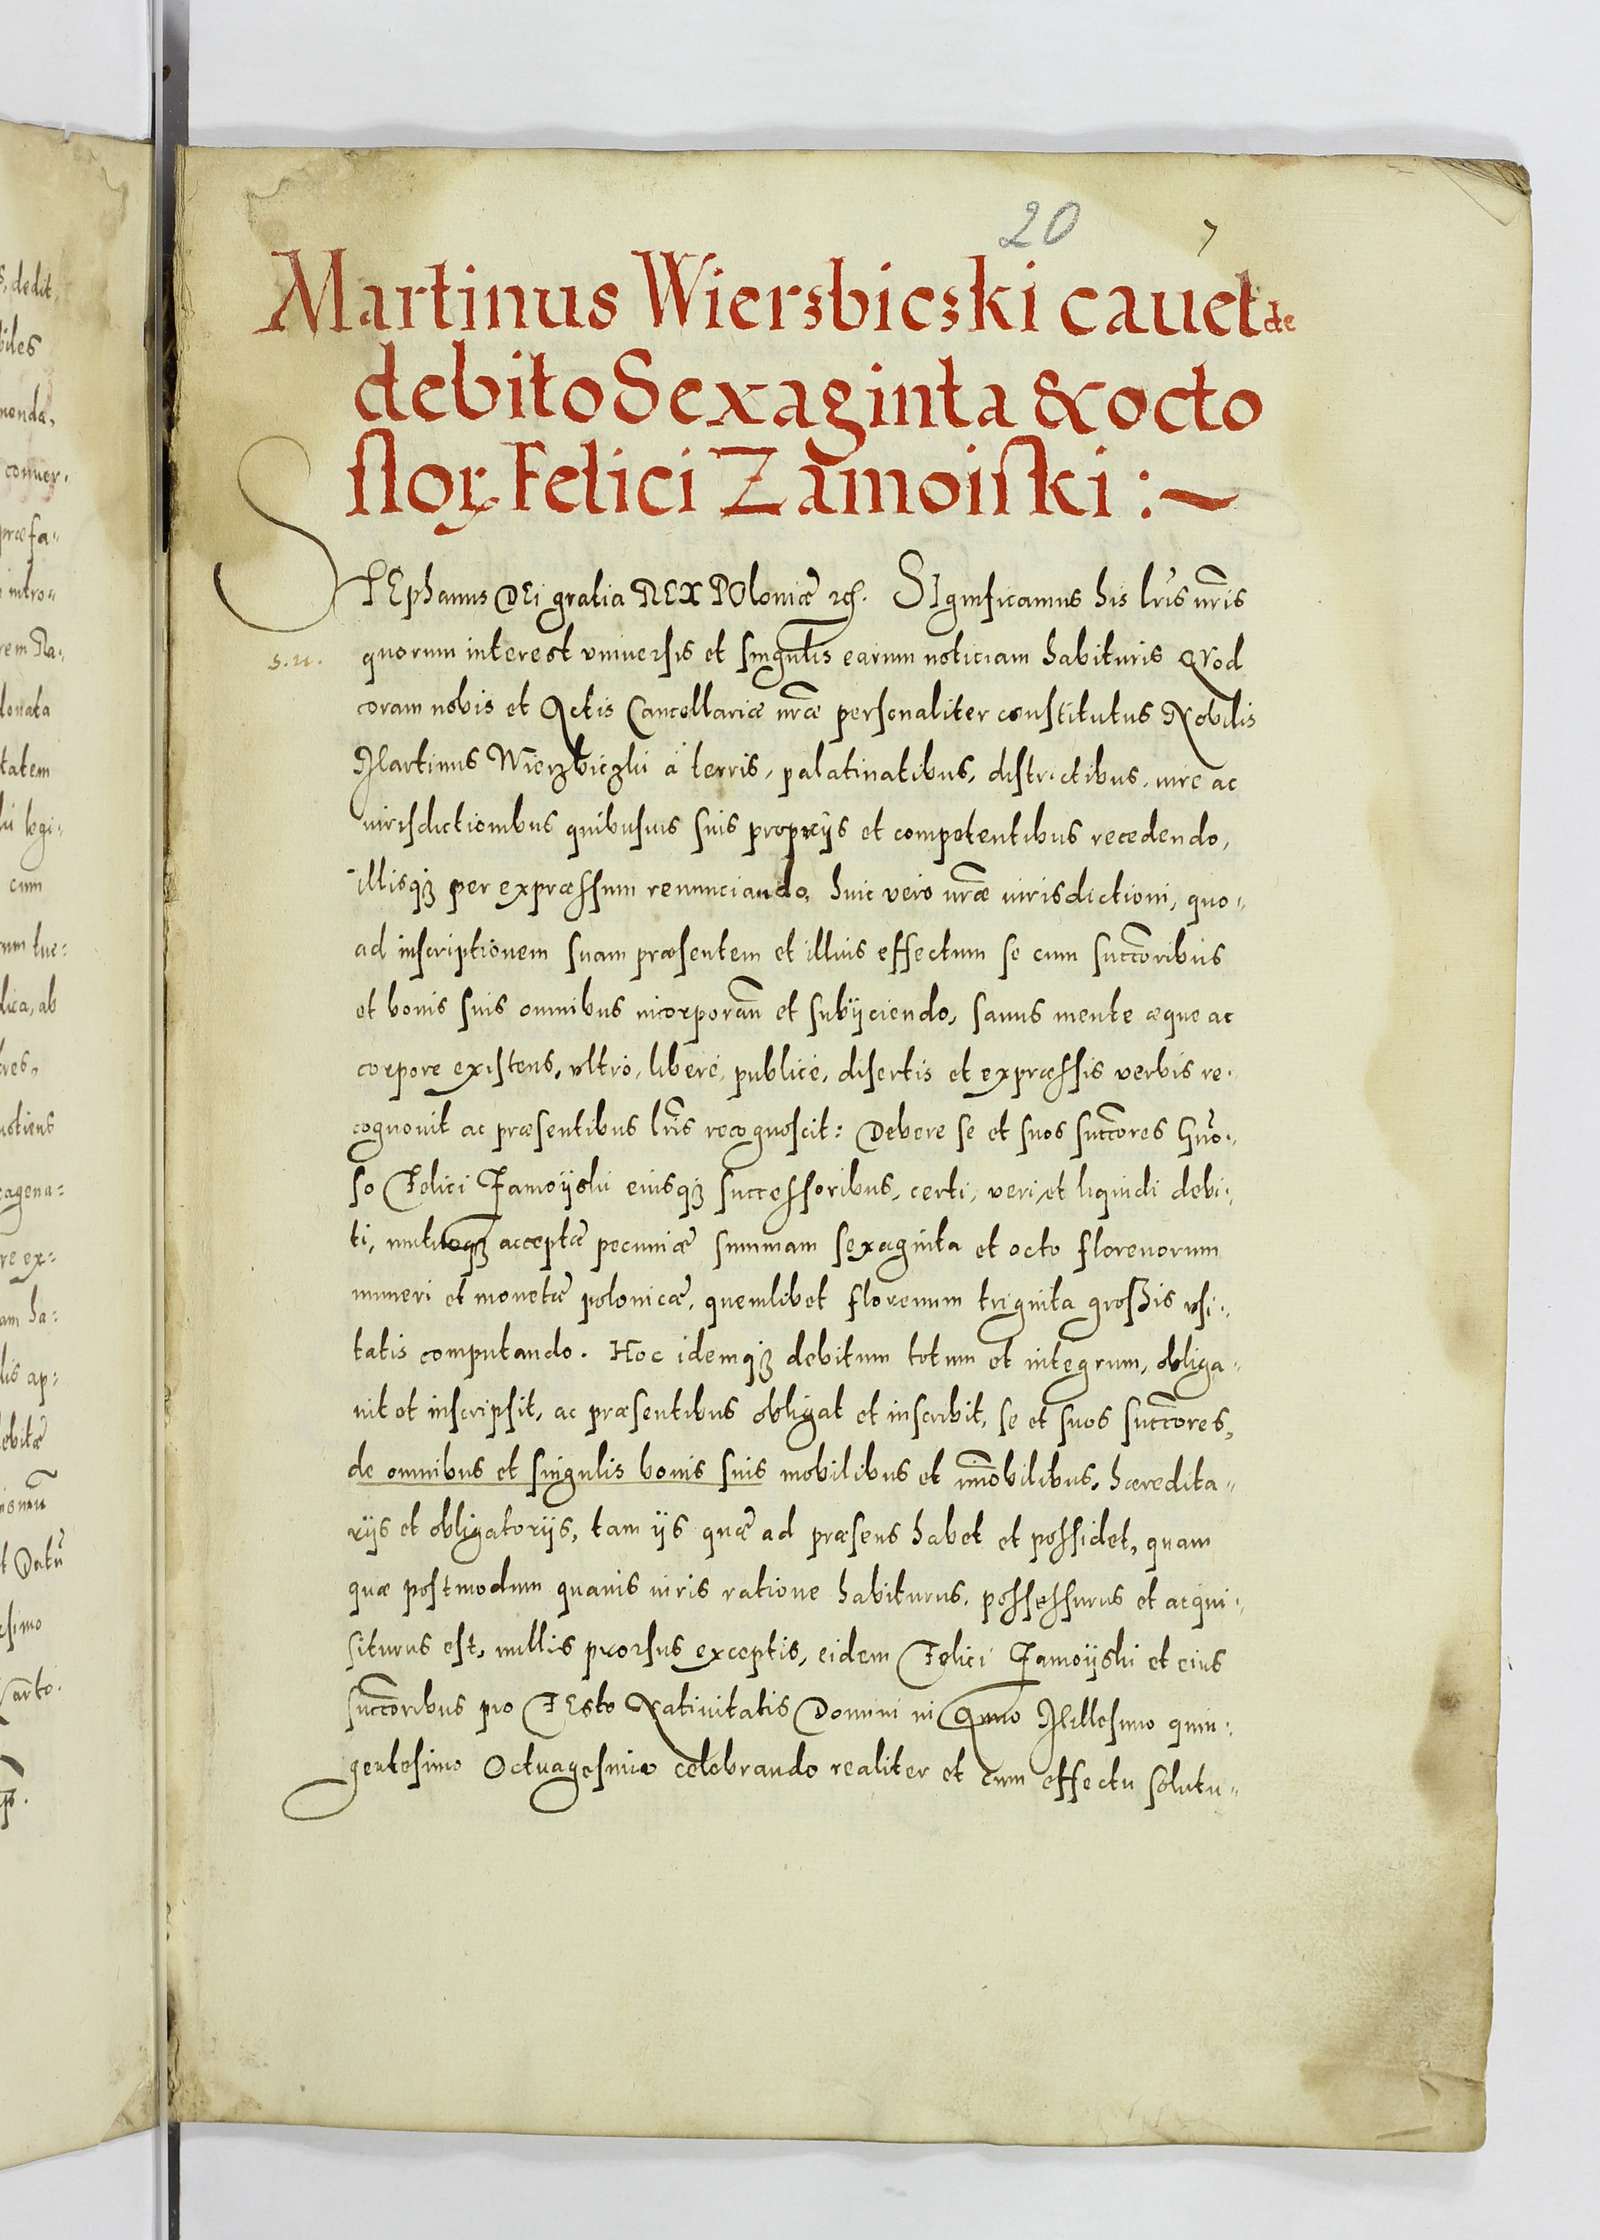 20 7
Martinus Wierzbiczki cavet de
debito Sexaginta & octo
floꝝ Felici Zamoiski :~
STEphanus DEi gratia REX POloniæ etc. SIgnificamus his lris nris
s. n. quorum interest vniuersis et singulis earum noticiam habituris QVod
coram nobis et Actis Cancellariæ nræ personaliter constitutus Nobilis
Martinus Wierzbiczki à terris, palatinatibus, districtibus, iure ac
iurisdictionibus quibusuis suis proprijs et competentibus recedendo,
illisqꝫ per expræssum renunciando, huic vero nræ iurisdictioni, quo-
ad inscriptionem suam præsentem et illius effectum se cum succoribus
et bonis suis omnibus incorporan et subijciendo, sanus mente æque ac
corpore existens, vltro, libere, publice, disertis et expræssis verbis re-
cognouit ac præsentibus lris recognoscit: Debere se et suos succores Gno-
so Felici Zamoyski eiusqꝫ successoribus, certi, veri, et liquidi debi-
ti, mutuoqꝫ acceptæ pecuniæ summam sexaginta et octo florenorum
numeri et monetæ polonicæ, quemlibet florenum triginta grossis vsi-
tatis computando. Hoc idemqꝫ debitum totum et integrum, obliga-
uit et inscripsit, ac præsentibus obligat et inscribit, se et suos succores,
de omnibus et singulis bonis suis mobilibus et imobilibus, hæredita-
rijs et obligatorijs, tam ijs quæ ad præsens habet et possidet, quam
quæ postmodum quauis iuris ratione habiturus, possessurus et acqui-
siturus est, nullis prorsus exceptis, eidem Felici Zamoyski et eius
succoribus pro FEsto Natiuitatis Domini in Anno Millesimo quin-
gentesimo Octuagesimo celebrando realiter et cum effectu solutu-